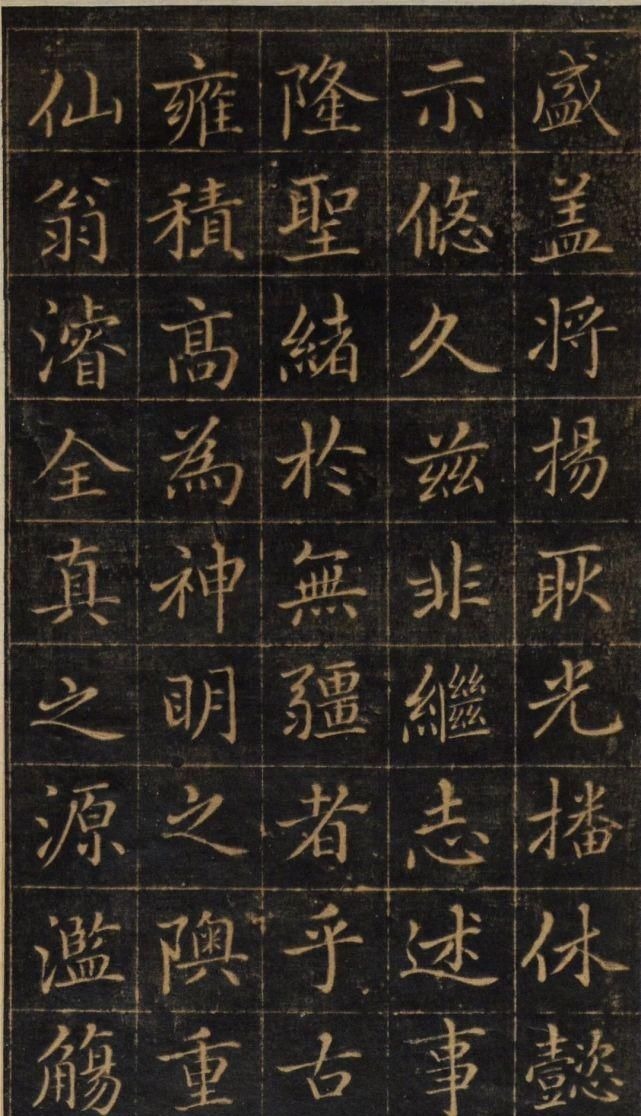 盛盖将揚耿光播休懿
示悠久兹非繼志述事
隆聖緒於無疆者乎古
雍積高為神明之隩重
仙翁濬全真之源濫觴